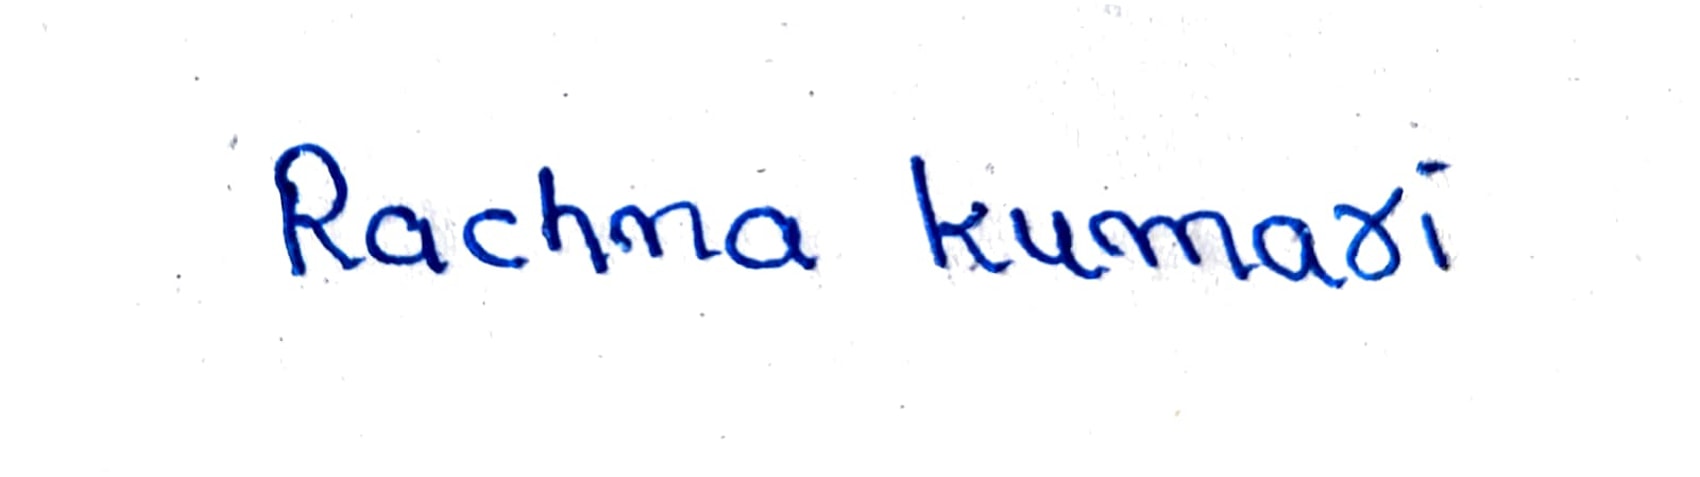 Rachna kumari